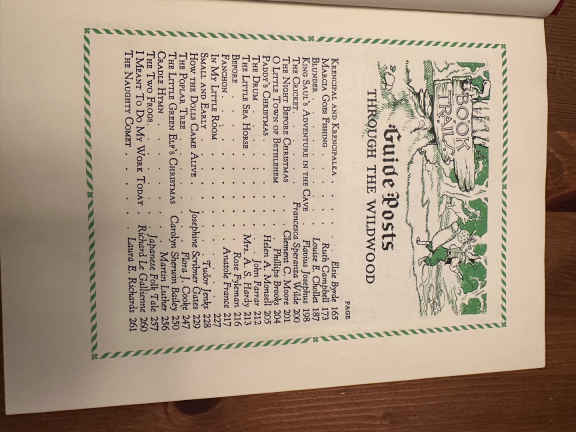 BOOK
TRAILS
Guide Posts
THROUGH THE WILDWOOD
PAGE
KRENCIPAL AND KRENCIPALKA . . . Elsie Byrde 165
MARCIA GOES FISHING . . . Ruth Campbell 173
BLUNDER . . . Louise E. Chollet 187
KING SAUL'S ADVENTURE IN THE CAVE . . . Flavius Josephus 198
THE CRICKET . . . Francesca Speranza Wilde 200
THE NIGHT BEFORE CHRISTMAS . . . Clement C. Moore 201
O LITTLE TOWN OF BETHLEHEM . . . Phillips Brooks 204
PADDY'S CHRISTMAS . . . Helen A. Monsell 205
THE DRUM . . . John Farrar 212
THE LITTLE SEA HORSE . . . Mrs. A. S. Hardy 213
BEFORE . . . Rose Fyleman 216
FANCHON . . . Anatole France 217
IN MY LITTLE ROOM . . . 227
SMALL AND EARLY . . . Tudor Jenks 228
HOW THE DOLLS CAME ALIVE . . . Josephine Scribner Gates 229
THE POPLAR TREE . . . Flora J. Cooke 247
THE LITTLE GREEN ELF'S CHRISTMAS . . . Carolyn Sherwin Bailey 250
CRADLE HYMN . . . Martin Luther 256
THE TWO FROGS . . . Japanese Folk Tale 257
I MEANT TO DO MY WORK TODAY . . . Richard Le Gallienne 260
THE NAUGHTY COMET . . . Laura E. Richards 261